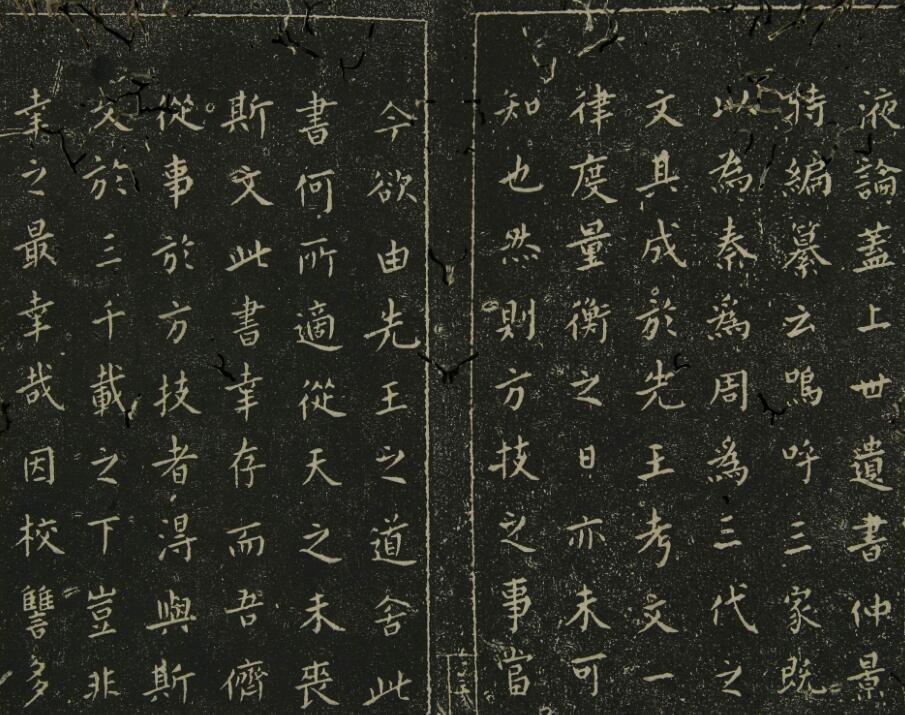 液論蓋上世遺書仲景
特編纂云嗚呼三家既
以為秦為周為三代之
文具成於先王考文一
律度量衡之日亦未可
知也然則方技之事當
今欲由先王之道舍此
書何所適從天之未喪
斯文此書幸存而吾儕
從事於方技者得與斯
文於三千載之下豈非
幸之最幸哉因校讐多